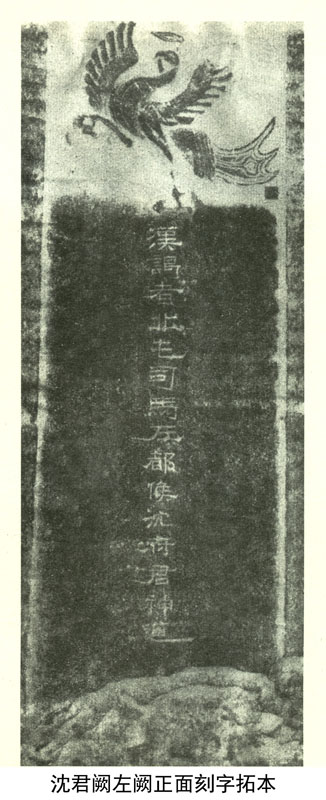 漢謁者北屯司馬左都侯沈府君神道
沈君阙左阙正面刻字拓本